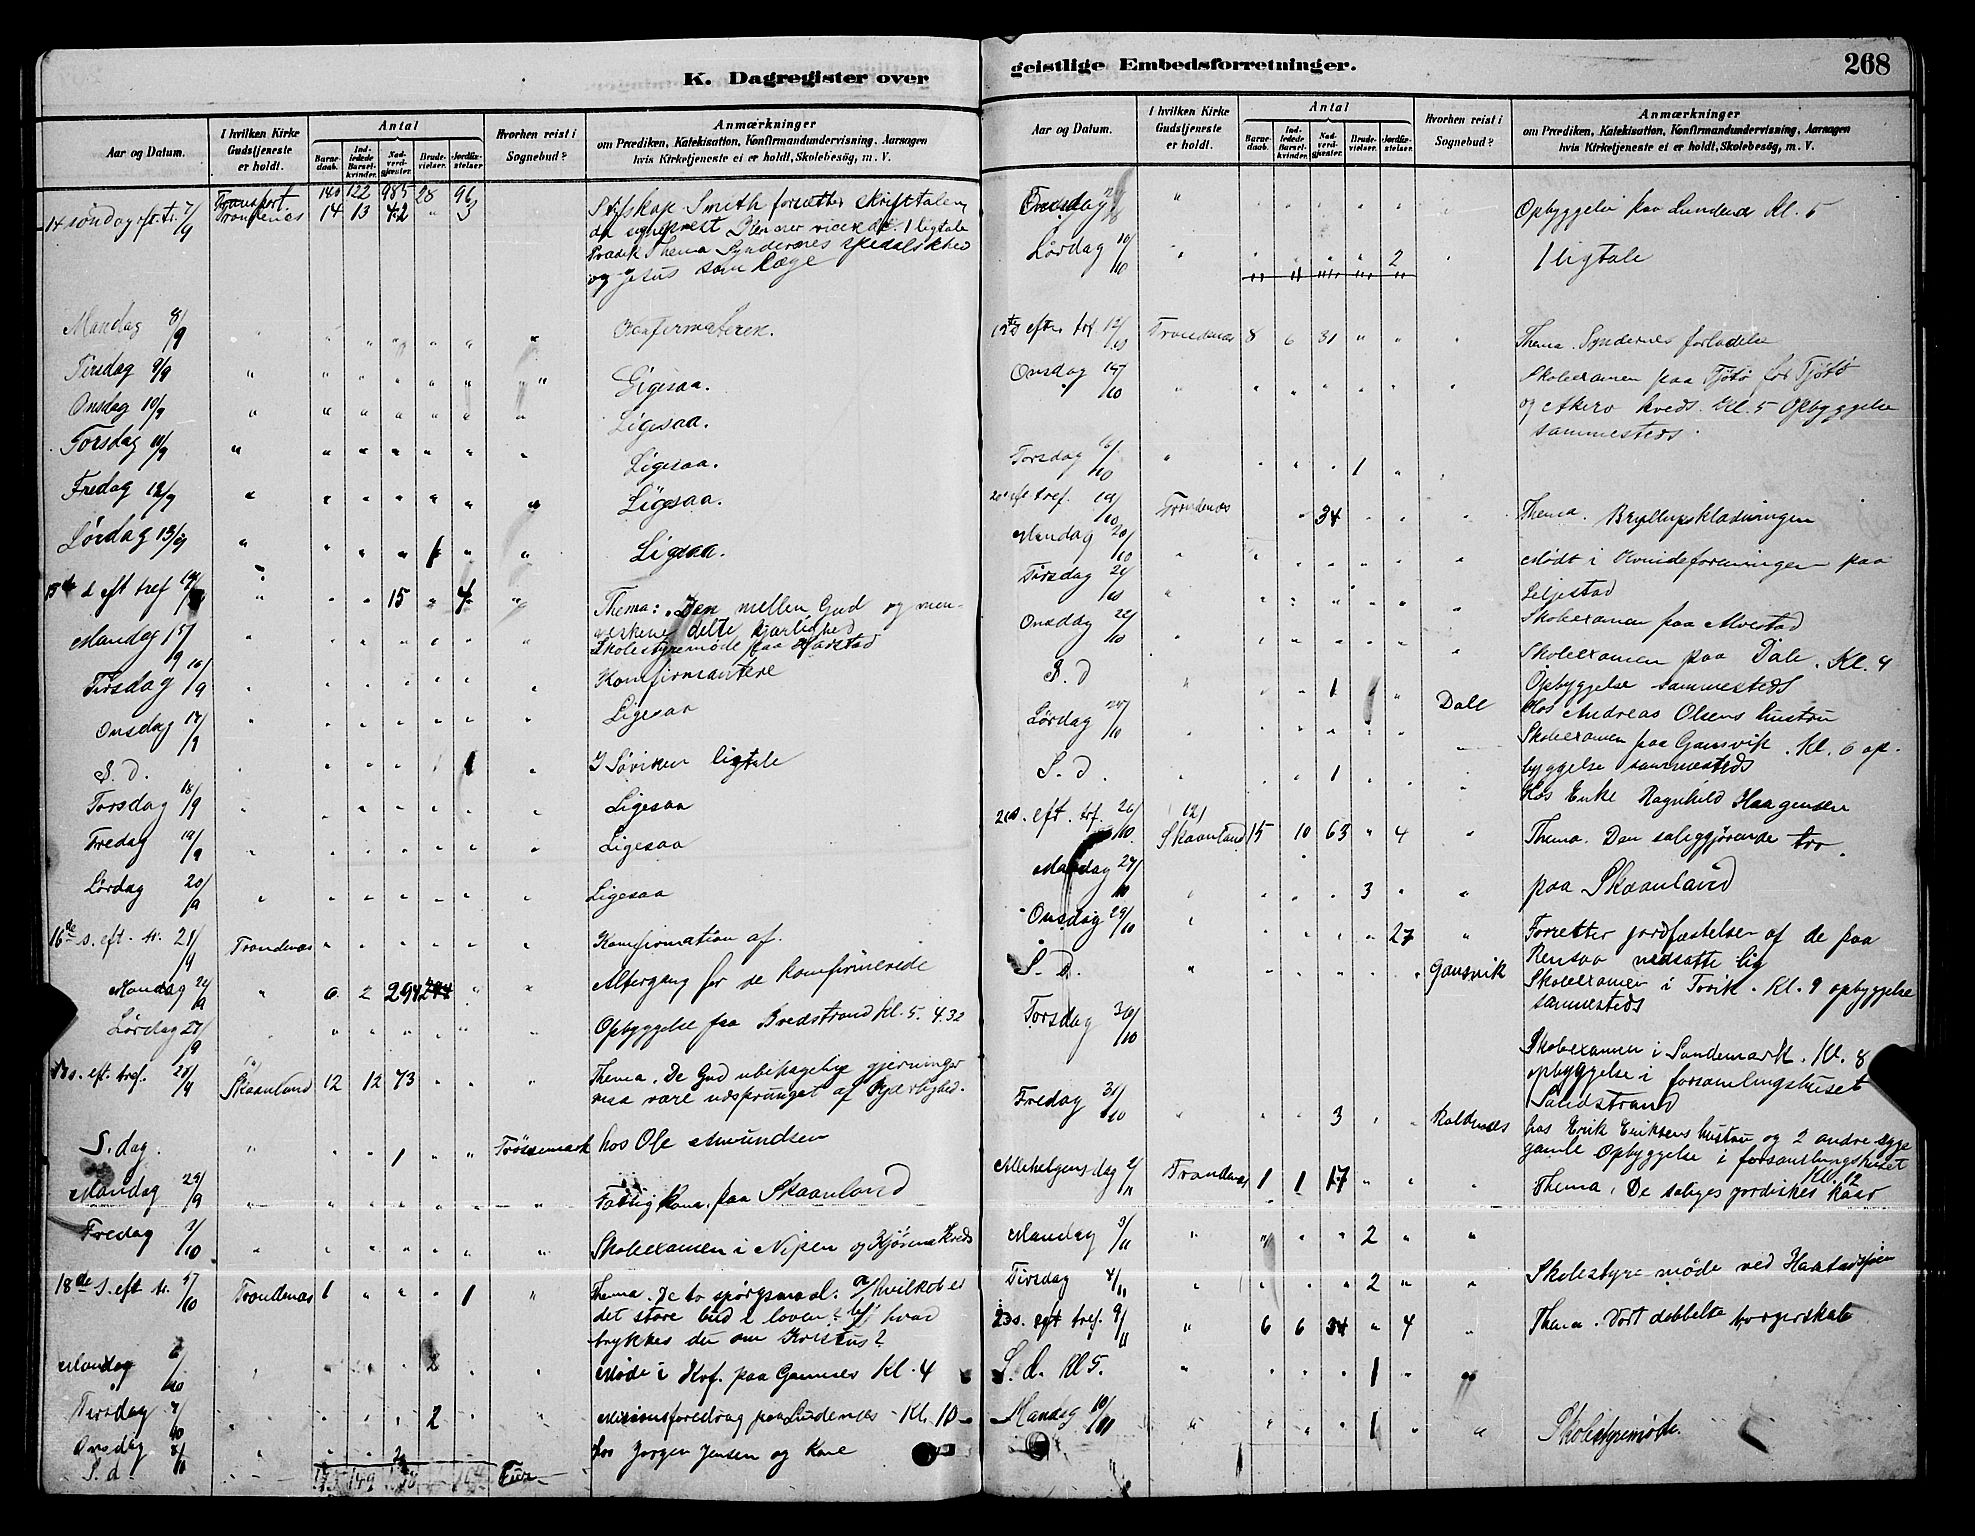 K. Dagregister over
Aar og Datum.
I hvilken Kirke Gudstjeneste er holdt.
Antal
Barnedaab.
Indledede Barselkvinder.
Nadverdgjester.
Brudevielser.
Jordfæstelser.
Hvorhen reist i Sognebud?
Anmærkninger
om Prædiken, Katekisation, Konfirmandundervisning, Aarsagen
hvis Kirketjeneste ei er holdt, Skolebesög, m. V.
Transport. 140 122 985 28 96
14 søndag eft. tr. 7/9 Trondenæs 14 13 42 " 3
Smith forsætter skriftalen
1 ligtale
Thema Syndernes spedalskhed
og Jesus som Læge
Mandag 8/9 Konfirmanterne.
Tirsdag 9/9 " Ligesaa.
Onsdag 10/9 " Ligesaa.
Torsdag 11/9 " Ligesaa.
Fredag 12/9 " Ligesaa.
Lørdag 13/9 " 1 Ligesaa.
15de s eft tref 14/9 " 15 " 4 Thema: Den mellem Gud og men-
neskene delte kjærlighed
Mandag 15/9 Skolestyremøde paa Harstad
Tirsdag 16/9 Konfirmantere
Onsdag 17/9 Ligesaa
S. d. 1 I Søviken ligtale
Torsdag 18/9 Ligesaa
Fredag 19/9 Ligesaa
Lørdag 20/9 Ligesaa
16de s. eft. tr. 21/9 Trondenæs Konfirmation af.
Mandag 22/9 6 2 294 Altergang for de konfirmerede
Lørdag 27/9 Opbyggelse paa Bredstrand Kl. 5. 4.32
s. eft. tref. 28/9 Skaanland 12 12 73 Thema. De Gud ubehagelige gjerninger
maa være udsprunget af Kjærlighed.
S. dag. 1 Trøssemark hos Ole Amundsen
Mandag 29/9 Fattigkom. paa Skaanland
Fredag 3/10 Skoleexamen i Nipen og Kjørme Kreds
18de s. eft tr. 5/10 Trondenæs 1 1 Thema. De to spørgsmaal. a/ hvilket er
det store bud i loven? b/ hvad
tykkes der om Kristus?
Mandag 6/10 2 Møde i Kvf. paa Gamnes Kl. 4
Tirsdag 7/10 2 Missionsforedrag paa Kl. 10
Onsdag 8/10
S. d. 2 hos Jørgen Jensen og Kone
geistlige Embedsforretninger.
268
Aar og Datum.
I hvilken Kirke Gudstjeneste er holdt.
Antal
Barnedaab.
Indledede Barselkvinder.
Nadverdgjester.
Brudevielser.
Jordfæstelser.
Hvorhen reist i Sognebud?
Anmærkninger
om Prædiken, Katekisation, Konfirmandundervisning, Aarsagen
hvis Kirketjeneste ei er holdt, Skolebesög, m. V.
Onsdag " Opbyggelse paa Lundenæs Kl. 5
Lørdag 10/10 " 2 1 ligtale
efter tref 12/10 Trondenæs 8 6 31 Thema. Syndernes forladelse
Onsdag 15/10 Skoleexamen paa Tjøtø for Tjøtø
og Akerø kreds. Kl. 5 Opbyggelse
sammesteds.
Torsdag 16/10 " 1
20 s eft tref. 19/10 Trondenæs 34 Thema. Bryllupsklædningen
Mandag 20/10 Mødt i Kvindeforeningen paa
Liljestad
Tirsdag 21/10 Skoleexamen paa Alvestad
Onsdag 22/10 Skoleexamen paa Dale. Kl. 4
Opbyggelse sammesteds
S. d 1 Dale Hos Andreas Olsens hustru
Lørdag 25/10 Skoleexamen paa Gansvik. Kl. 6 op-
byggelse sammesteds
S. d. 1 Hos Enke Ragnhild Haagensen
21 s. eft. trf. 26/10 Skaanland 15 10 63 " 4 Thema. Den saliggjørende tro.
Mandag 27/10 3 paa Skaanland
Onsdag 29/10 27 Forretter jordfæstelser af de paa
Rensaa nedsatte lig
S. d. Gansvik Skoleexamen i Tovik. Kl. 9 opbyggelse
sammesteds
Torsdag 30/10 Skoleexamen i Sandemark. Kl. 8
opbyggelse i forsamlingshuset
Sandstrand
Fredag 31/10 3 hos Erik Eriksens hustru og 2 andre syge
gamle Opbyggelse i forsamlingshuset
Kl. 12
Allehelgensdag 2/11 Trondenæs 1 1 17 Thema. De saliges jordiske kaar
Mandag 3/11 2
Tirsdag 4/11 2 Skolestyremøde ved
23 s. eft tref. 9/11 " 6 6 34 " 4 Thema. Vort dobbelte borgerskab
S. d. Kl 5. " 1
Mandag 10/11 " 1 Skolestyremøde.